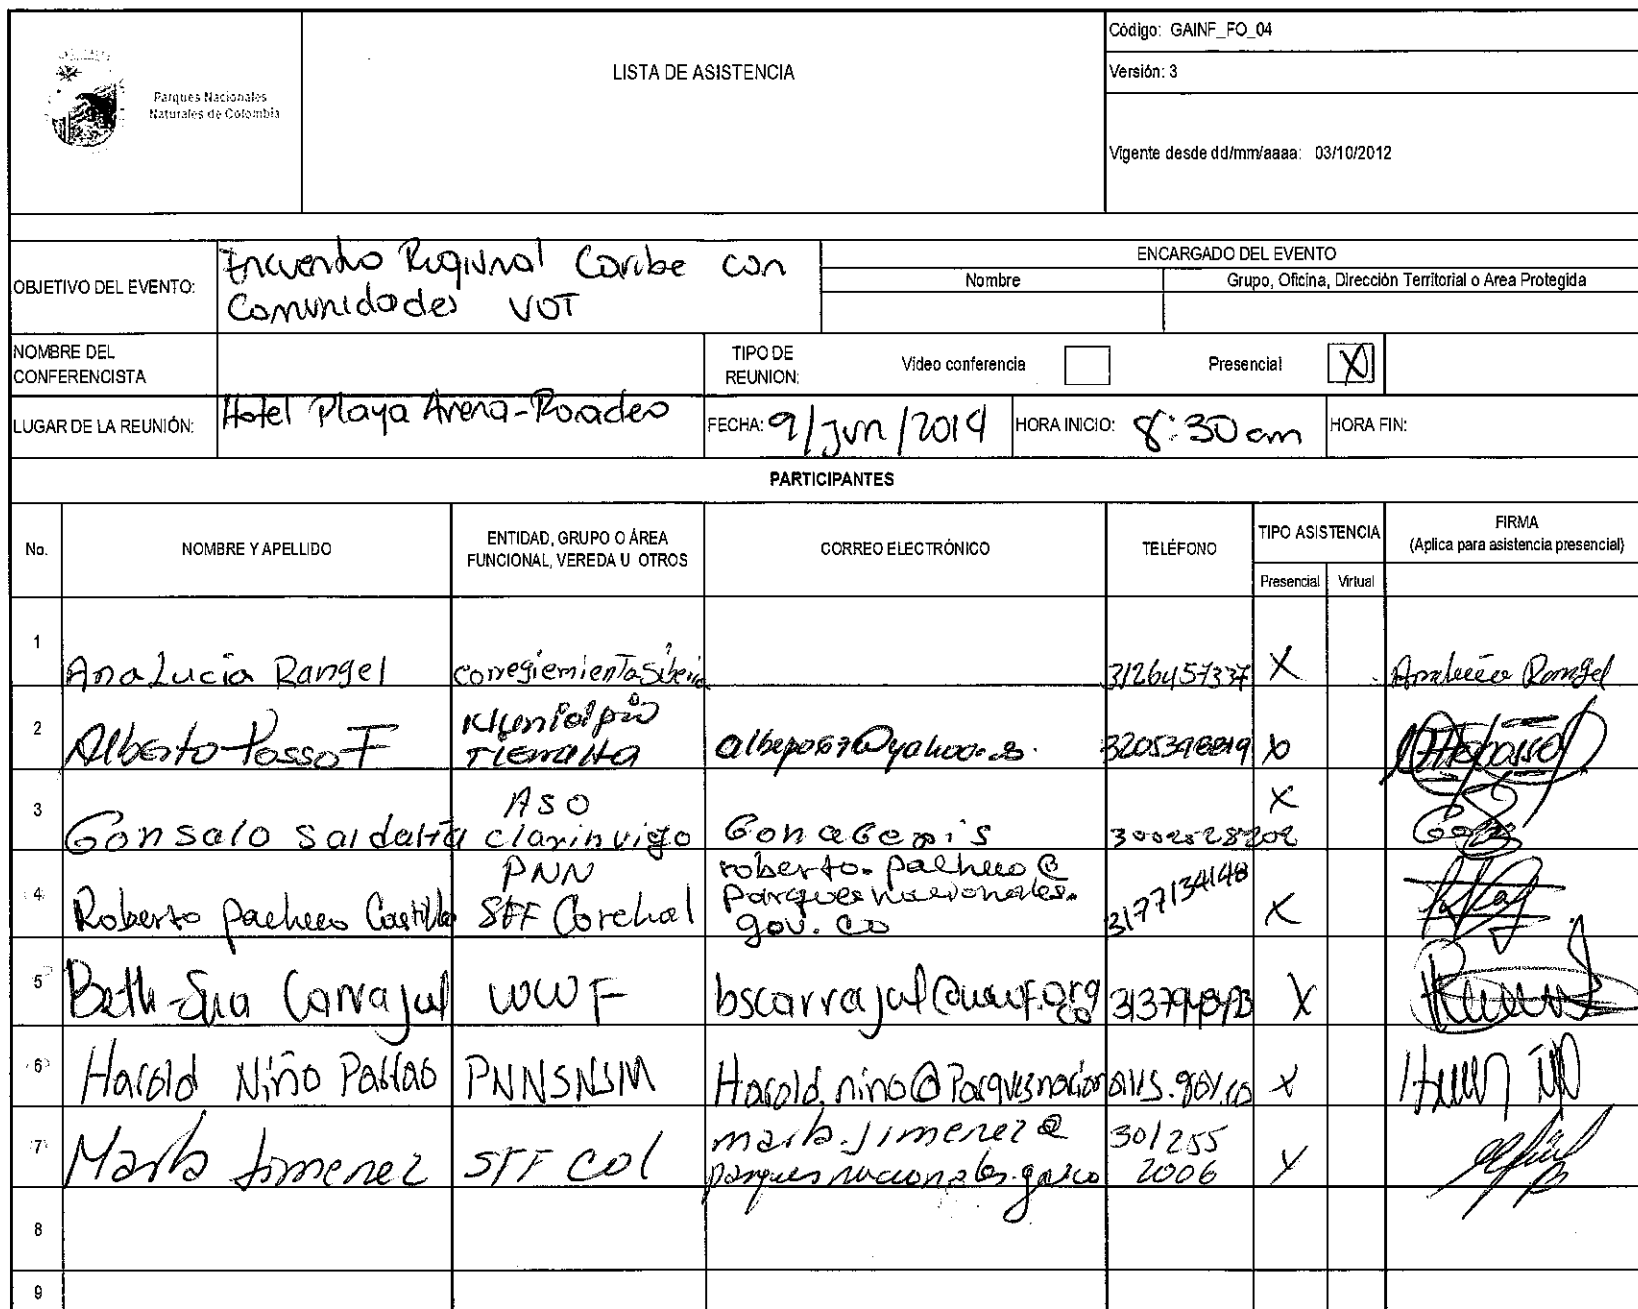 Parques Nacionales
Naturales de Colombia
LISTA DE ASISTENCIA
Código: GAINF_FO_04
Versión: 3
Vigente desde dd/mm/aaaa: 03/10/2012
OBJETIVO DEL EVENTO:
Encuentro Regional Caribe con
Comunidades UOT
ENCARGADO DEL EVENTO
Nombre
Grupo, Oficina, Dirección Territorial o Area Protegida
NOMBRE DEL
CONFERENCISTA
TIPO DE
REUNION:
Video conferencia
Presencial X
LUGAR DE LA REUNIÓN:
Hotel Playa Arena-Rodadero
FECHA: 9/Jun/2014
HORA INICIO: 8:30 am
HORA FIN:
PARTICIPANTES
No.
NOMBRE Y APELLIDO
ENTIDAD, GRUPO O ÁREA
FUNCIONAL, VEREDA U OTROS
CORREO ELECTRÓNICO
TELÉFONO
TIPO ASISTENCIA
Presencial Virtual
FIRMA
(Aplica para asistencia presencial)
1 Ana Lucia Rangel X Ana Lucia Rangel
2 Alberto Posso F Municipio
Tierralta
X
3 Gonsalo Saldaña ASO
clarin viejo
X
4 Roberto Pacheco Castillo PNN
SFF Corchal
roberto.pacheco@
parquesnacionales.
gov.co
3177134148 X
5 Beth-Sua Carvajal WWF bscarvajal@wwf.org
co
X
6 Harold Niño Pablas PNNSNSM Harold.nino@Parquesnacionales.gov.co X
7 Marta Jimenez SFF Col marta.jimenez@
parquesnacionales.gov.co
301255
2006
X
8
9